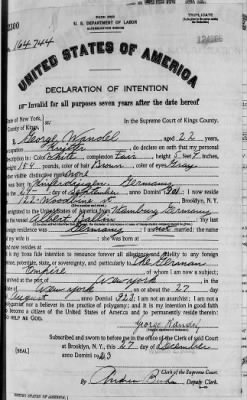 2100
U. S. DEPARTMENT OF LABOR
NATURALIZATION SERVICE
TRIPLICATE
No. 164744
UNITED STATES OF AMERICA
DECLARATION OF INTENTION
Invalid for all purposes seven years after the date hereof
State of New York,
County of Kings,
In the Supreme Court of Kings County.
I, George Wandel, aged 22 years,
occupation Knitter, do declare on oath that my personal
description is: Color White, complexion Fair, height 5 feet 7 inches,
weight 154 pounds, color of hair Brown, color of eyes Gray
other visible distinctive marks none
I was born in Germany
on the day of September, anno Domini 1901; I now reside
at Woodbine St. Brooklyn, N. Y.
I emigrated to the United States of America from Hamburg Germany
on the vessel Albert Ballin; my last
foreign residence was Germany; I am not married; the name
of my wife is; she was born at
and now resides at
It is my bona fide intention to renounce forever all allegiance and fidelity to any foreign
prince, potentate, state, or sovereignty, and particularly to The German
Empire, of whom I am now a subject;
I arrived at the port of New York, in the
State of New York, on or about the 27 day
of August, anno Domini 1923; I am not an anarchist; I am not a
polygamist nor a believer in the practice of polygamy; and it is my intention in good faith
to become a citizen of the United States of America and to permanently reside therein:
SO HELP ME GOD.
George Wandel
Subscribed and sworn to before me in the office of the Clerk of said Court
[SEAL]
at Brooklyn, N. Y., this 27 day of December
anno Domini 1923
Clerk of the Supreme Court.
By Deputy Clerk.